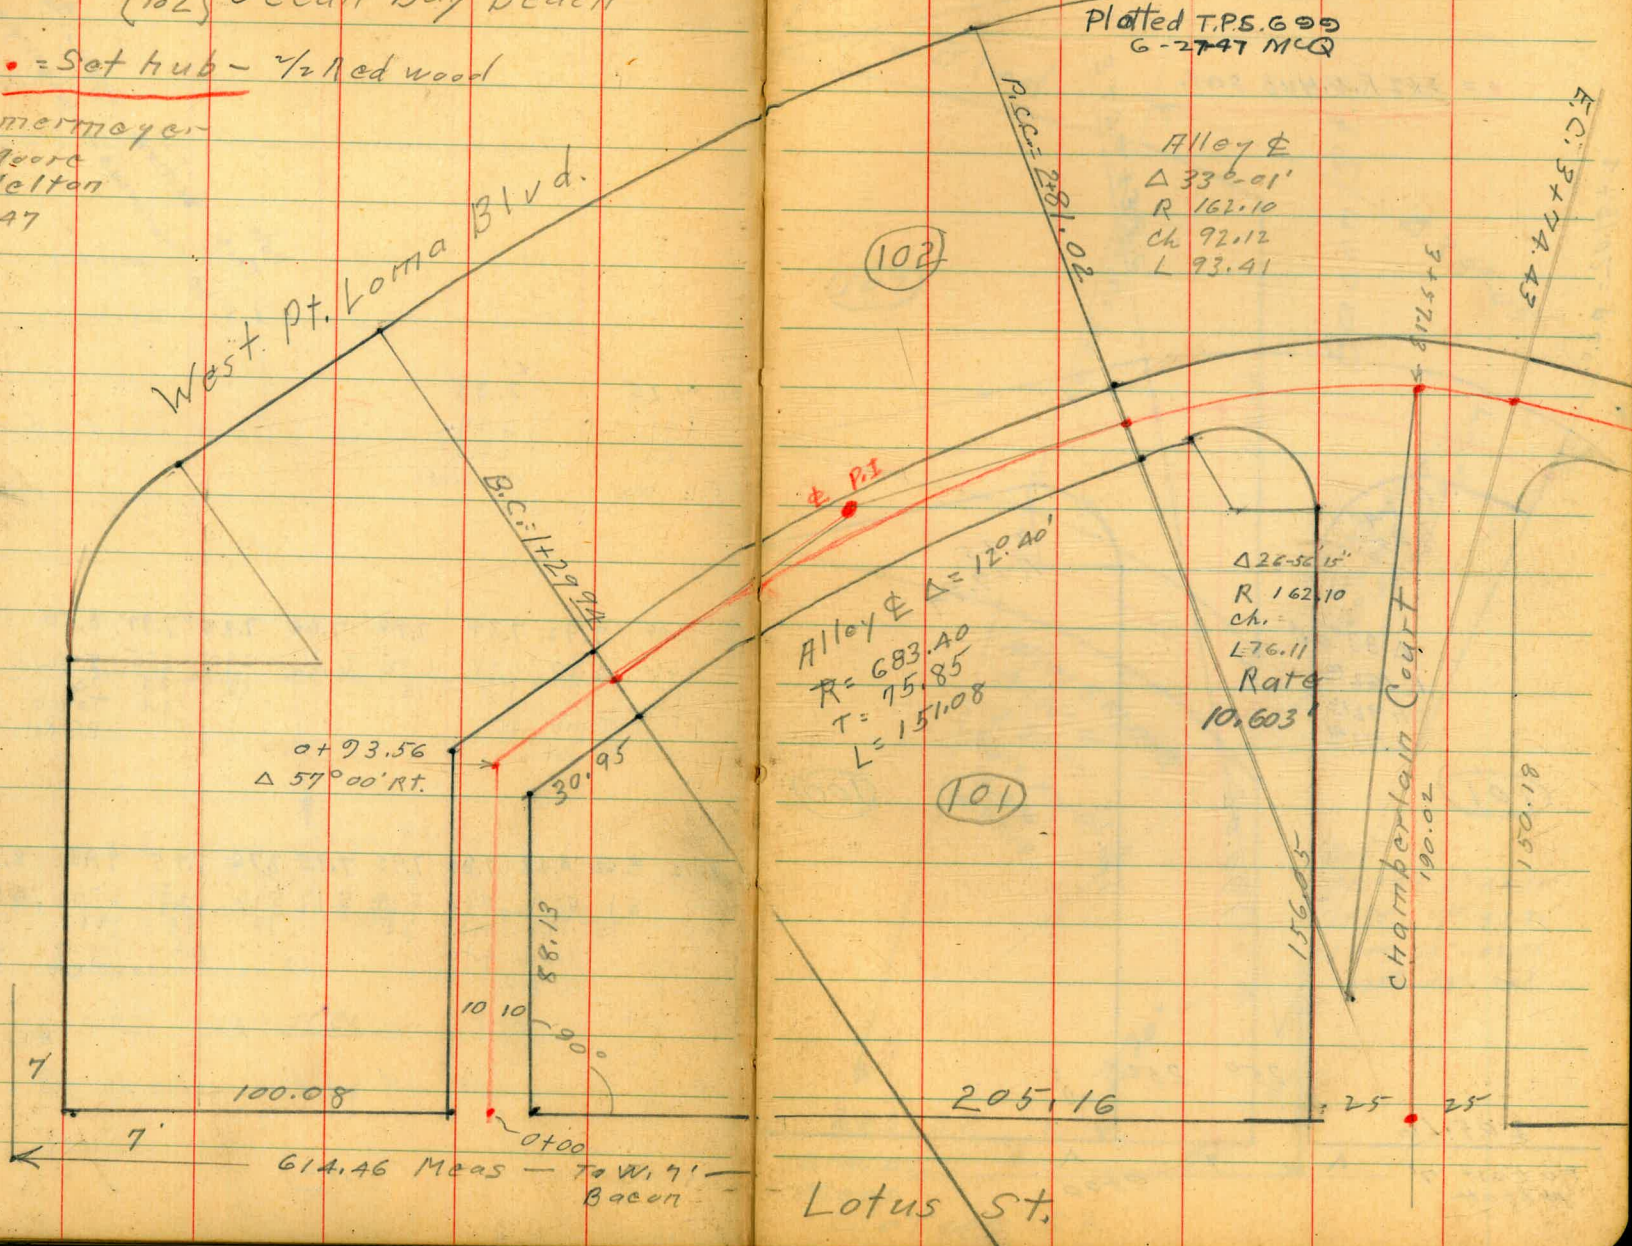 (102) Ocean Bay Beach
• = Set hub - 2/2 Redwood
mermeyer
Moore
elton
47
Plotted T.P.S. 699
6-27-47 McQ
West Pt. Loma Blvd.
P.C.C. = 2+81.02
Alley ℄
Δ 33°-01'
R 162.10
Ch 92.12
L 93.41
E.C. 3+74.43
3+57.13
(102)
B.C. = 1+29.94
℄ P.I
Alley ℄ Δ = 12°.40'
R = 683.40
T = 75.85
L = 151.08
Δ 26-56'15"
R 162.10
Ch.
L 76.11
Rate
10.603'
0+93.56
Δ 57°00' Rt.
30.95
(101)
Chamberlain Court
190.02
150.18
156.05
88.13
10 10
90°
7'
100.08
205.16
25 25
7'
0+00
614.46 Meas - To W. 7'
Bacon
Lotus St.